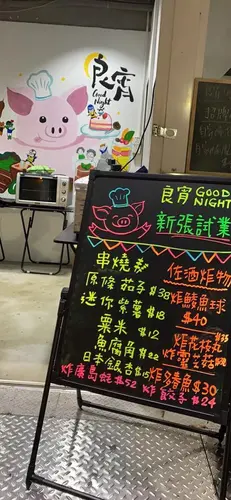 良宵
Good
Night
良宵 GOOD
NIGHT
新張試業
串燒類
原條茄子 $38
迷你紫薯 $18
粟米 $12
魚腐角 $22
日本銀杏 $15
炸廣島蠔 $52
佐酒炸物
炸鯪魚球
$40
炸花枝丸
炸雲吞
炸多春魚 $30
炸餃子 $24